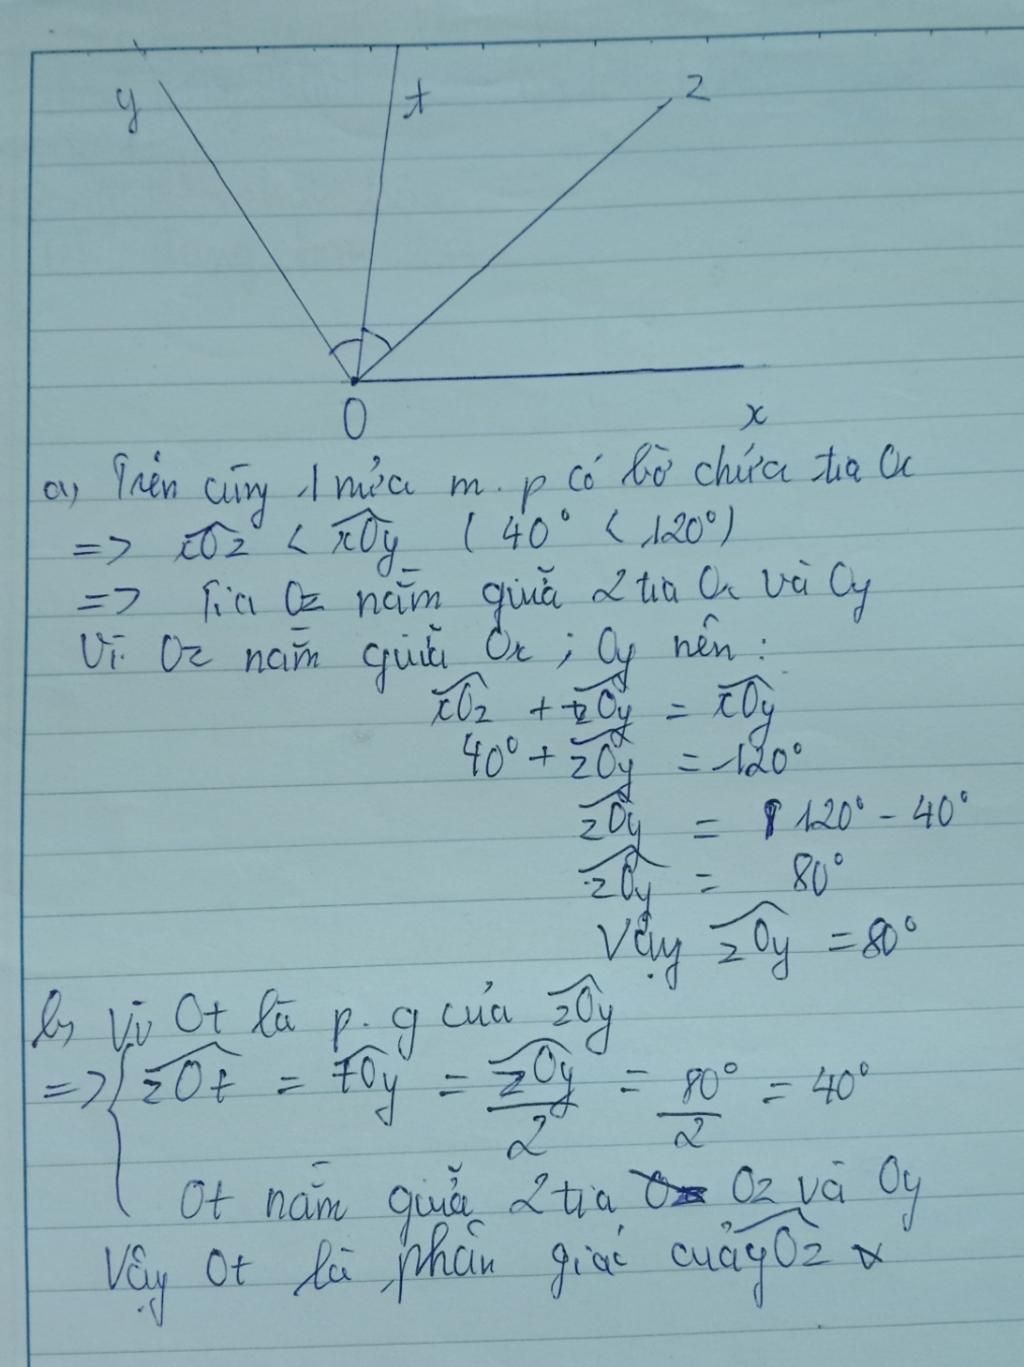 y
t
z
O
x
a, Trên cùng 1 nửa m.p có bờ chứa tia Ox
=> xOz < xOy (40° < 120°)
=> Tia Oz nằm giữa 2 tia Ox và Oy
Vì Oz nằm giữa Ox ; Oy nên :
xOz + zOy = xOy
40° + zOy = 120°
zOy = 120° - 40°
zOy = 80°
Vậy zOy = 80°
b, Vì Ot là p.g của zOy
=> { zOt = tOy = zOy/2 = 80°/2 = 40°
Ot nằm giữa 2 tia Oz và Oy
Vậy Ot là phân giác của yOz